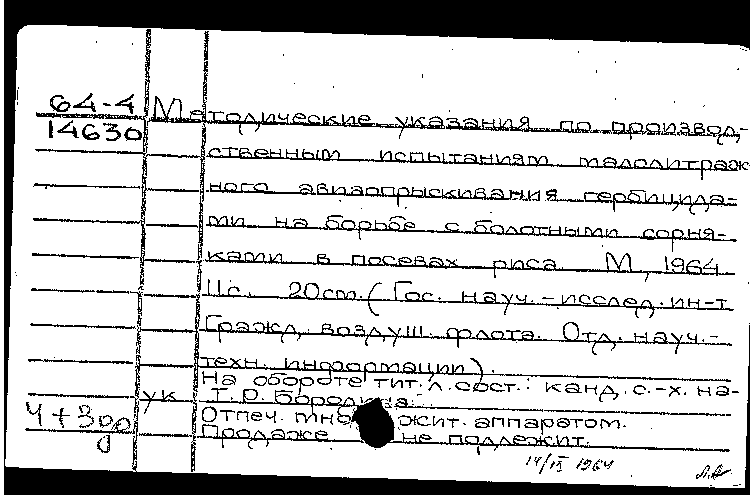 64-4 Методические указания по производ-
14630
ственным испытаниям малолитраж
ного авиаопрыскивания гербицида-
ми на борьбе с болотными сорня-
ками в посевах риса. М, 1964.
11с. 20см. (Гос. науч.-исслед. ин-т
Гражд. воздуш. флота. Отд. науч.-
техн. информации).
На обороте тит. л. сост.: канд. с.-х. на-
ук Т. Р. Бородина.
Отпеч. множит. аппаратом.
Продаже не подлежит.
14/IX 1964